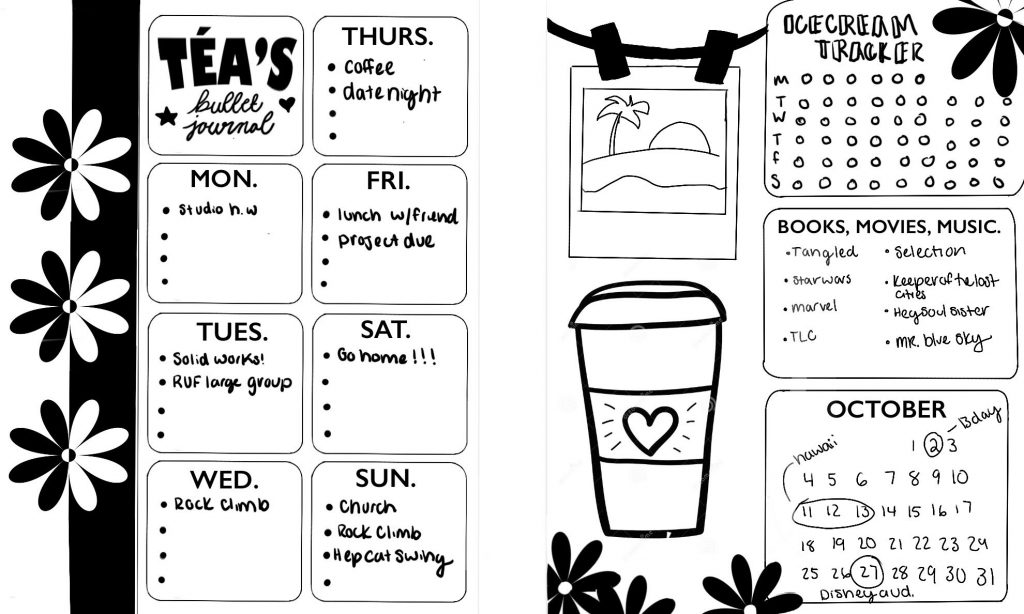 TÉA'S
bullet
journal
THURS.
• coffee
• date night
•
•
MON.
• Studio h.w
•
•
•
FRI.
• lunch w/friend
• project due
•
•
TUES.
• Solid works!
• RUF large group
•
•
SAT.
• Go home!!!
•
•
•
WED.
• Rock Climb
•
•
•
SUN.
• Church
• Rock Climb
• Hep Cat Swing
•
ICECREAM
TRACKER
M
T
W
T
F
S
BOOKS, MOVIES, MUSIC.
• Tangled
• star wars
• marvel
• TLC
• Selection
• Keeper of the lost
cities
• Hey Soul sister
• mr. blue sky
OCTOBER
Bday
hawaii
1 2 3
4 5 6 7 8 9 10
11 12 13 14 15 16 17
18 19 20 21 22 23 24
25 26 27 28 29 30 31
Disney aud.